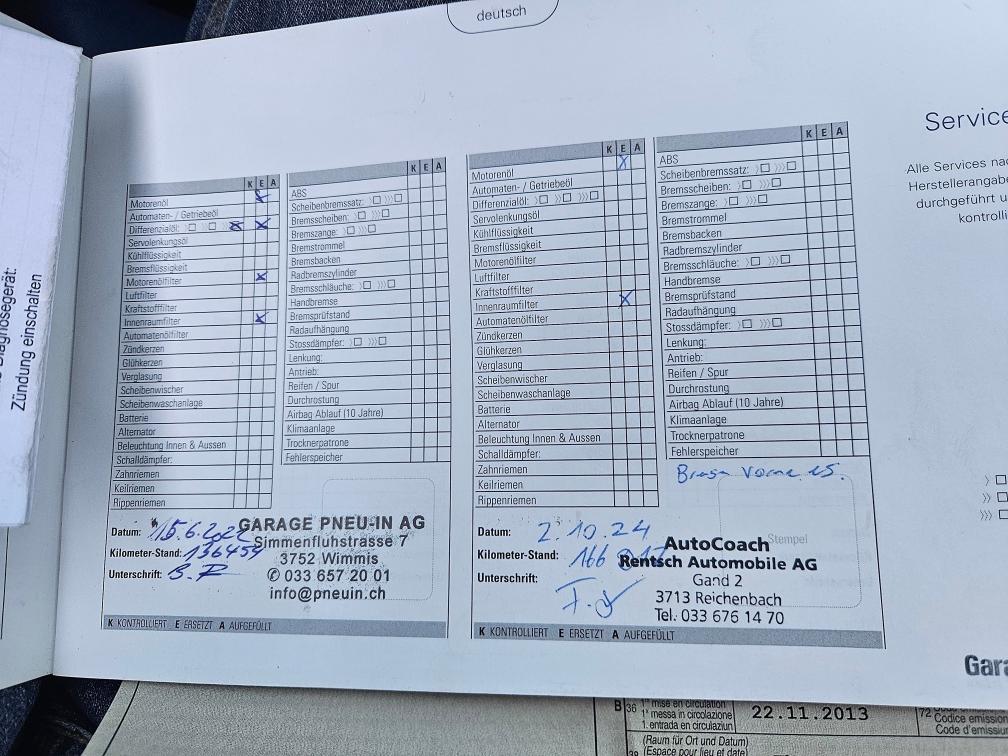 deutsch
Diagnosegerät:
Zündung einschalten
K E A
Motorenöl
Automaten- / Getriebeöl
Differenzialöl:
Servolenkungsöl
Kühlflüssigkeit
Bremsflüssigkeit
Motorenölfilter
Luftfilter
Kraftstofffilter
Innenraumfilter
Automatenölfilter
Zündkerzen
Glühkerzen
Verglasung
Scheibenwischer
Scheibenwaschanlage
Batterie
Alternator
Beleuchtung Innen & Aussen
Schalldämpfer:
Zahnriemen
Keilriemen
Rippenriemen
K E A
ABS
Scheibenbremssatz: 〉☐ 〉〉〉☐
Bremsscheiben: 〉☐ 〉〉〉☐
Bremszange: 〉☐ 〉〉〉☐
Bremstrommel
Bremsbacken
Radbremszylinder
Bremsschläuche: 〉☐ 〉〉〉☐
Handbremse
Bremsprüfstand
Radaufhängung
Stossdämpfer: 〉☐ 〉〉〉☐
Lenkung:
Antrieb:
Reifen / Spur
Durchrostung
Airbag Ablauf (10 Jahre)
Klimaanlage
Trocknerpatrone
Fehlerspeicher
Datum: 15.6.2022
Kilometer-Stand: 136454
Unterschrift: B.R
GARAGE PNEU-IN AG
Simmenfluhstrasse 7
3752 Wimmis
✆ 033 657 20 01
info@pneuin.ch
K KONTROLLIERT E ERSETZT A AUFGEFÜLLT
K E A
Motorenöl
Automaten- / Getriebeöl
Differenzialöl: 〉☐ 〉〉☐ 〉〉〉☐
Servolenkungsöl
Kühlflüssigkeit
Bremsflüssigkeit
Motorenölfilter
Luftfilter
Kraftstofffilter
Innenraumfilter
Automatenölfilter
Zündkerzen
Glühkerzen
Verglasung
Scheibenwischer
Scheibenwaschanlage
Batterie
Alternator
Beleuchtung Innen & Aussen
Schalldämpfer:
Zahnriemen
Keilriemen
Rippenriemen
K E A
ABS
Scheibenbremssatz: 〉☐ 〉〉〉☐
Bremsscheiben: 〉☐ 〉〉〉☐
Bremszange: 〉☐ 〉〉〉☐
Bremstrommel
Bremsbacken
Radbremszylinder
Bremsschläuche: 〉☐ 〉〉〉☐
Handbremse
Bremsprüfstand
Radaufhängung
Stossdämpfer: 〉☐ 〉〉〉☐
Lenkung:
Antrieb:
Reifen / Spur
Durchrostung
Airbag Ablauf (10 Jahre)
Klimaanlage
Trocknerpatrone
Fehlerspeicher
Vorne
Datum: 2.10.24
Kilometer-Stand: 166
Unterschrift:
Stempel
AutoCoach
Rentsch Automobile AG
Gand 2
3713 Reichenbach
Tel. 033 676 14 70
K KONTROLLIERT E ERSETZT A AUFGEFÜLLT
Service
Alle Services nac
Herstellerangabe
durchgeführt u
kontrolli
Gara
B 36 1re mise en circulation
1a messa in circolazione
1. entrada en circulaziun
22.11.2013
72
Codice emission
Code d'emiss
(Raum für Ort und Datum)
(Espace pour lieu et date)